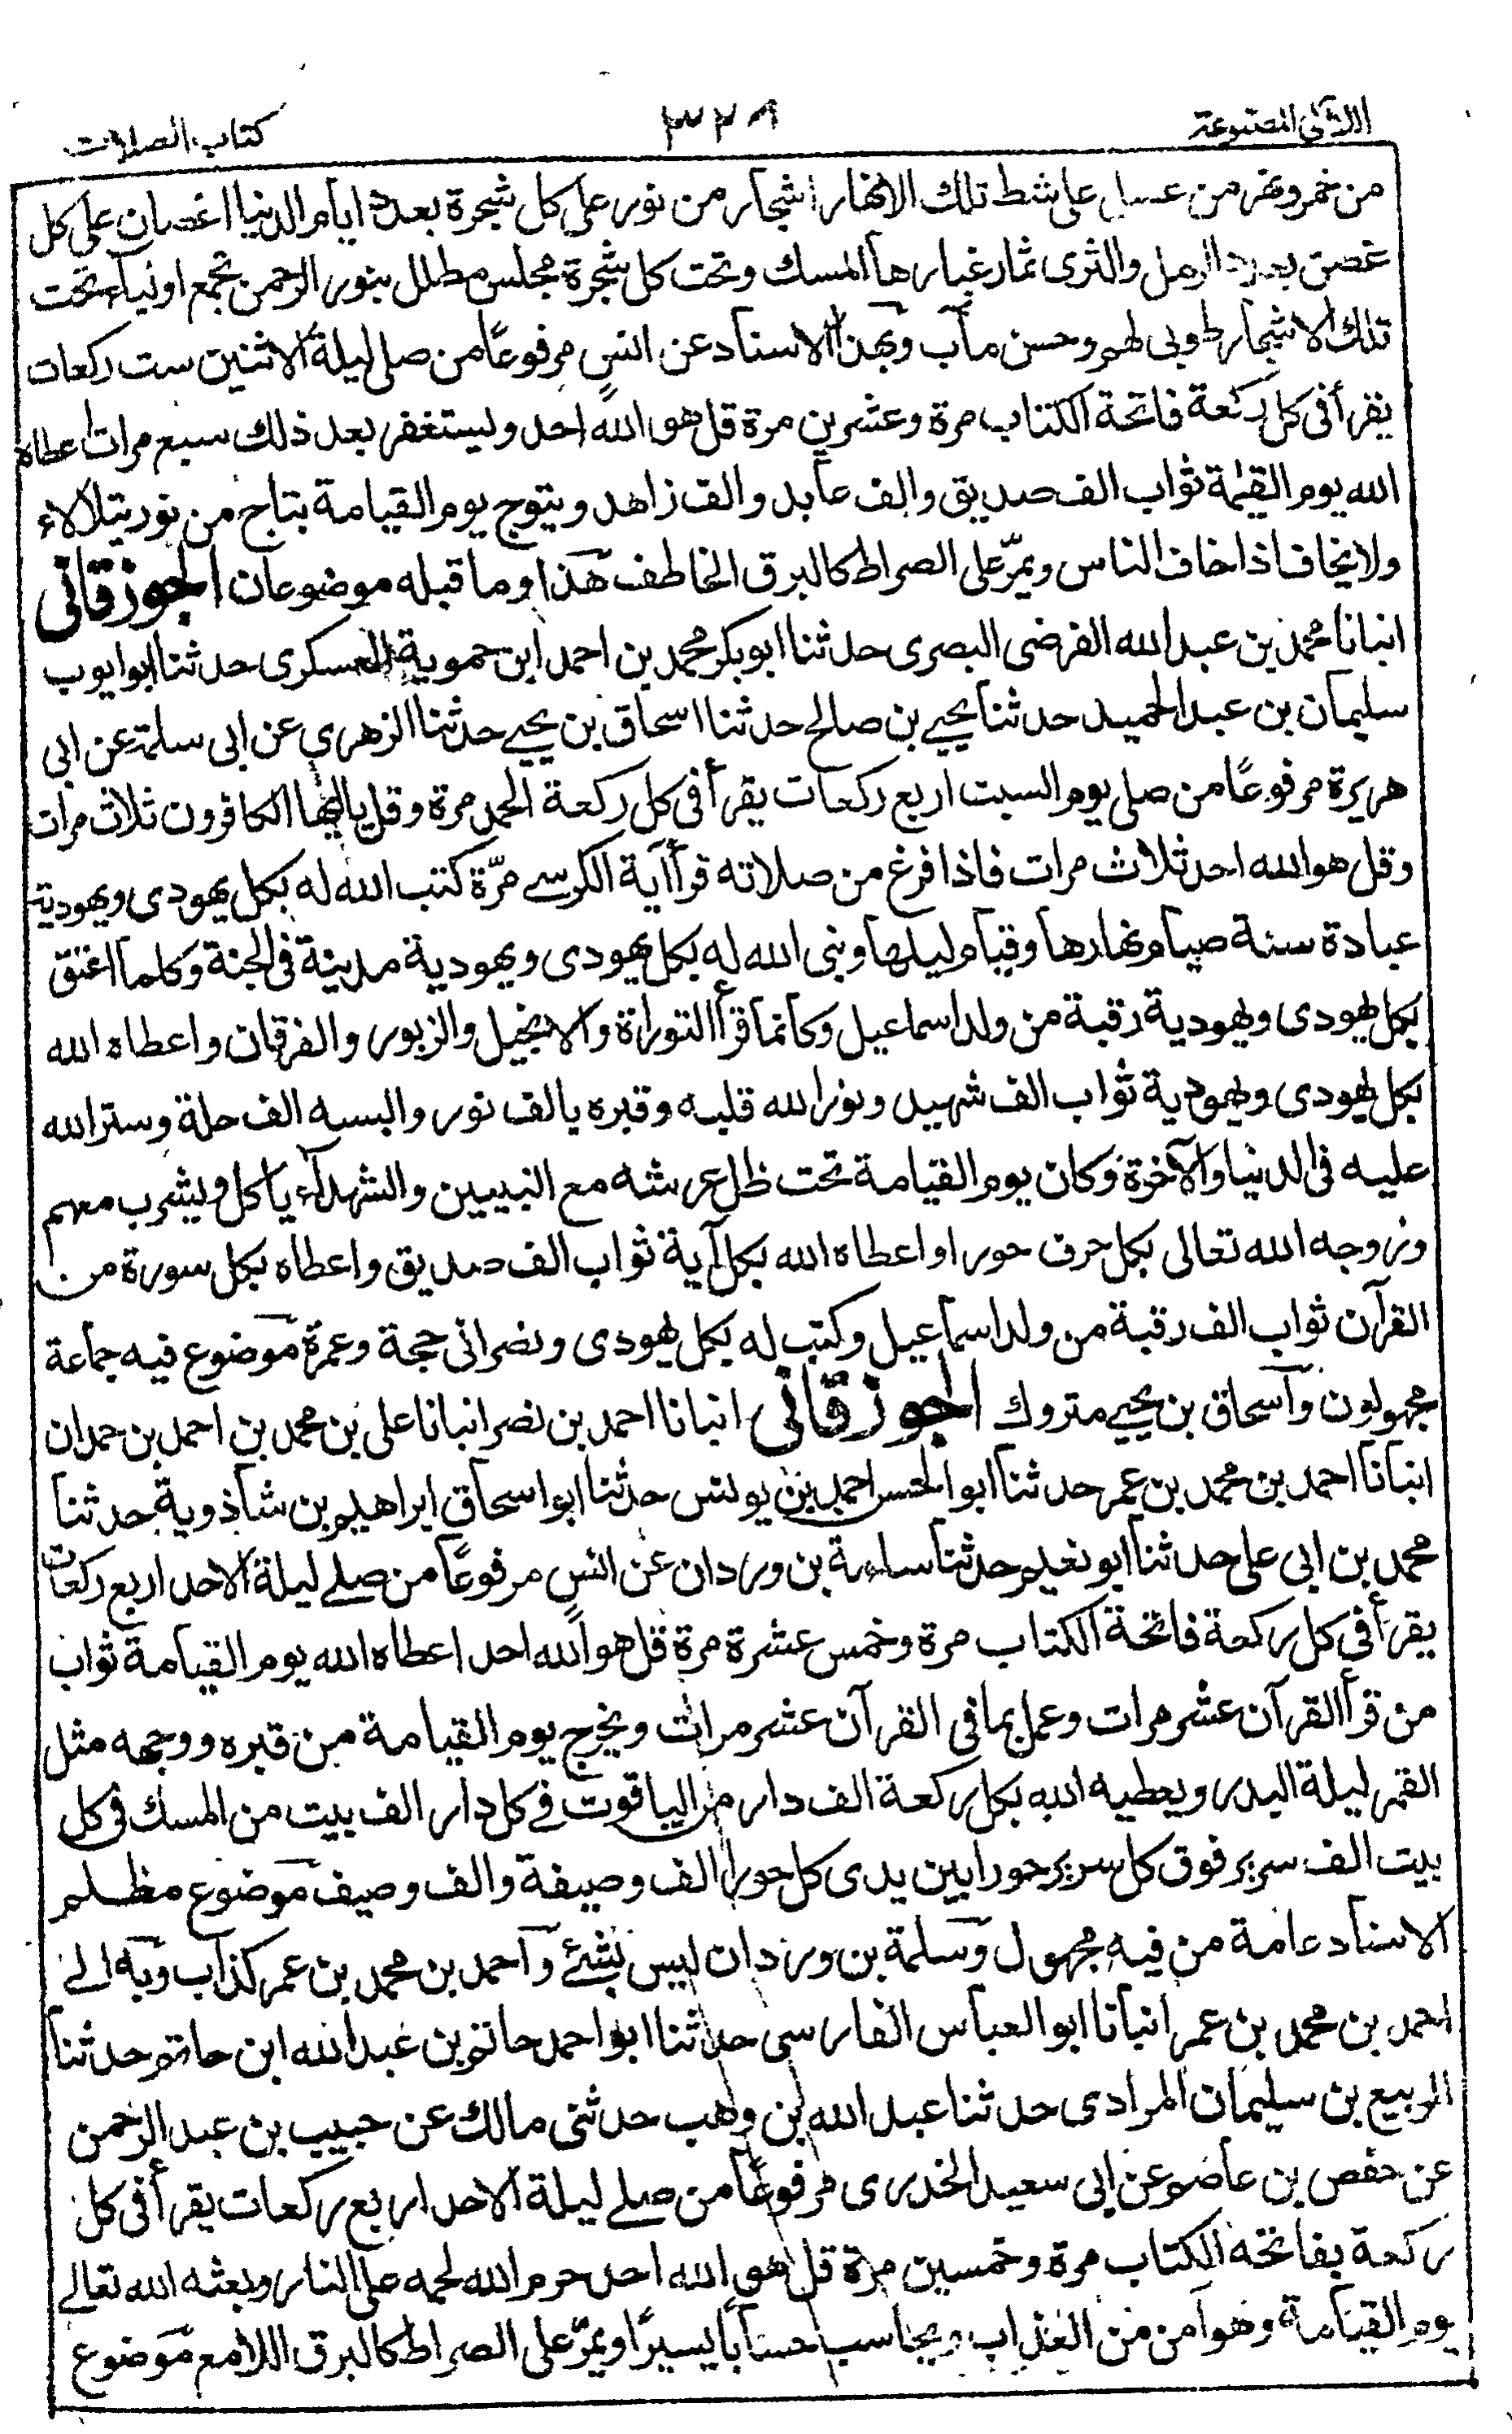 اللآلى المصنوعة
٣٢٨
كتاب الصلات
من خمر ونهر من عسل على شط تلك الانهار اشجار من نور على كل شجرة بعدد ايام الدنيا اغصان على كل
غصن بعدد الرمل والثرى ثمار غبارها المسك وتحت كل شجرة مجلس مظلل بنور الرحمن تجمع اولياء تحت
تلك الاشجار طوبى لهم وحسن مآب وبهذا الاسناد عن انس مرفوعًا من صلى ليلة الاثنين ست ركعات
يقرأ فى كل ركعة فاتحة الكتاب مرة وعشرين مرة قل هو الله احد وليستغفر بعد ذلك سبع مرات اعطاه
الله يوم القيمة ثواب الف صديق والف عابد والف زاهد ويتوج يوم القيامة بتاج من نور يتلالاء
ولا يخاف اذا خاف الناس ويمرّ على الصراط كالبرق الخاطف هذا وما قبله موضوعان الجوزقانى
انبانا محمد بن عبد الله الفرضى البصرى حدثنا ابو بكر محمد بن احمد ابن حموية العسكرى حدثنا ابو ايوب
سليمان بن عبد الحميد حدثنا يحيے بن صالح حدثنا اسحاق بن يحيے حدثنا الزهرى عن ابى سلمة عن ابى
هريرة مرفوعًا من صلى يوم السبت اربع ركعات يقرأ فى كل ركعة الحمد مرة وقل يا ايها الكافرون ثلاث مرات
وقل هو الله احد ثلاث مرات فاذا فرغ من صلاته قرأ آية الكرسے مرّة كتب الله له بكل يهودى ويهودية
عبادة سنة صيام نهارها وقيام ليلها وبنى الله له بكل يهودى ويهودية مدينة فى الجنة وكلما اعتق
بكل يهودى ويهودية رقبة من ولد اسماعيل وكانما قرأ التوراة والانجيل والزبور والفرقان واعطاه الله
بكل يهودى ويهودية ثواب الف شهيد ونور الله قلبه وقبره بالف نور والبسه الف حلة وستر الله
عليه فى الدنيا والآخرة وكان يوم القيامة تحت ظل عرشه مع النبيين والشهداء ياكل ويشرب معهم
وزوجه الله تعالى بكل حرف حورا واعطاه الله بكل آية ثواب الف صديق واعطاه بكل سورة من
القرآن ثواب الف رقبة من ولد اسماعيل وكتب له بكل يهودى ونصرانى حجة وعمرة موضوع فيه جماعة
مجهولون واسحاق بن يحيے متروك الجوزقانى انبانا احمد بن نصر انبانا على بن محمد بن احمد بن حمدان
انبانا احمد بن محمد بن عمر حدثنا ابو الحسن احمد بن يونس حدثنا ابو اسحاق ابراهيم بن شاذوية حدثنا
محمد بن ابى على حدثنا ابو نعيم حدثنا سلمة بن وردان عن انس مرفوعًا من صلے ليلة الاحد اربع ركعات
يقرأ فى كل ركعة فاتحة الكتاب مرة وخمس عشرة مرة قل هو الله احد اعطاه الله يوم القيامة ثواب
من قرأ القرآن عشر مرات وعمل بما فى القرآن عشر مرات ويخرج يوم القيامة من قبره ووجهه مثل
القمر ليلة البدر ويعطيه الله بكل ركعة الف دار من الياقوت فے كل دار الف بيت من المسك فى كل
بيت الف سرير فوق كل سرير حورا بين يدى كل حورا الف وصيفة والف وصيف موضوع مظلم
الاسناد عامة من فيه مجهول وسلمة بن وردان ليس بشئے واحمد بن محمد بن عمر كذاب وبه الے
احمد بن محمد بن عمر انبانا ابو العباس الفارسى حدثنا ابو احمد حاتم بن عبد الله ابن حاتم حدثنا
الربيع بن سليمان المرادى حدثنا عبد الله بن وهب حدثنى مالك عن حبيب بن عبد الرحمن
عن حفص بن عاصم عن ابى سعيد الخدرى مرفوعًا من صلے ليلة الاحد اربع ركعات يقرأ فى كل
ركعة بفاتحة الكتاب مرة وخمسين مرة قل هو الله احد حرم الله لحمه على النار وبعثه الله تعالے
يوم القيامة وهو آمن من العذاب ويحاسب حسابًا يسيرًا ويمرّ على الصراط كالبرق اللامع موضوع